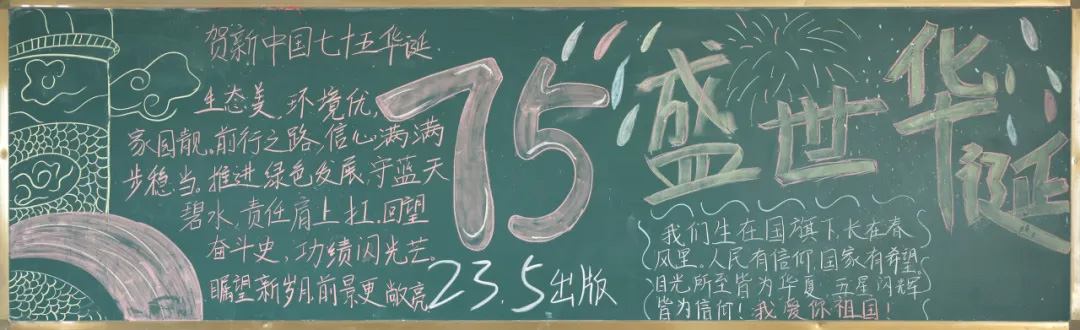 贺新中国七十五华诞
生态美,环境优,
家园靓。前行之路,信心满满
步稳当。推进绿色发展,守蓝天
碧水,责任肩上扛,回望
奋斗史,功绩闪光芒。
瞩望新岁月前景更敞亮
75
23.5出版
盛世华诞
我们生在国旗下,长在春
风里,人民有信仰,国家有希望,
目光所至皆为华夏,五星闪辉
皆为信仰!我爱你祖国!